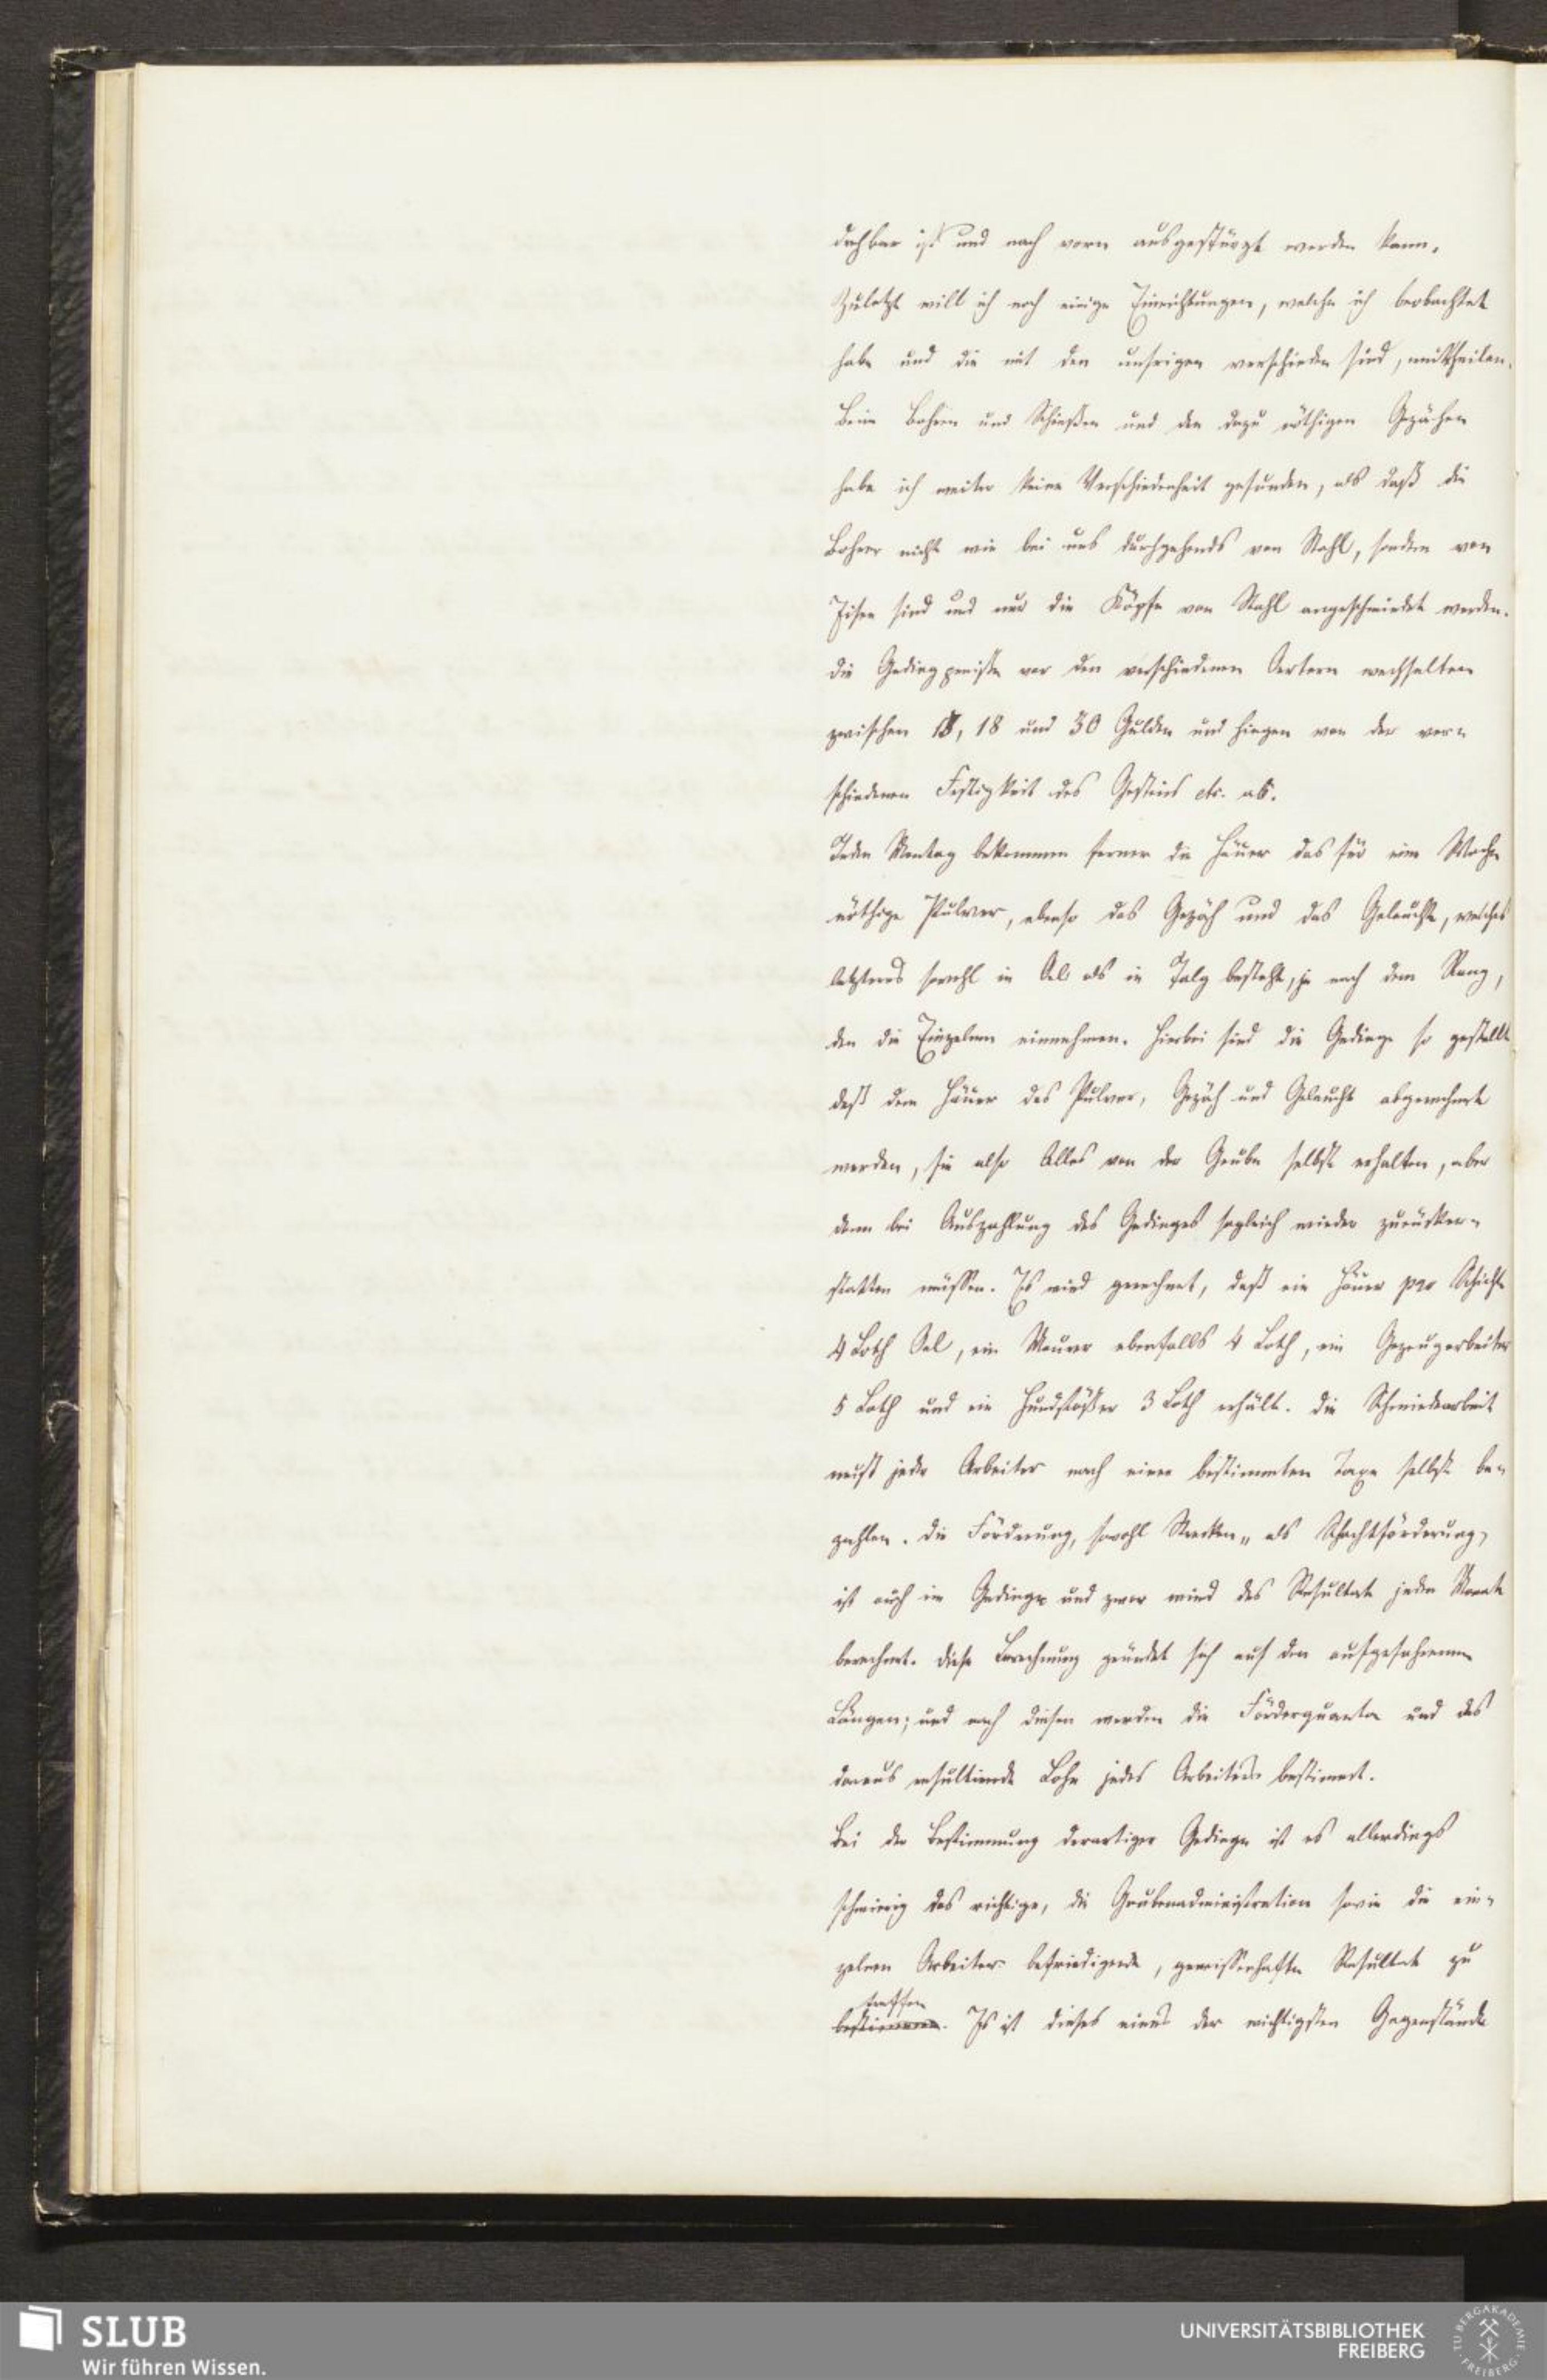 drehbar ist und nach vorn ausgestürzt werden kann.
Zuletzt will ich noch einige Einrichtungen, welche ich beobachtet
habe und die mit den unsrigen verschieden sind, mittheilen.
Beim Bohren und Schießen und den dazu nöthigen Gezähen
habe ich weiter keine Verschiedenheit gefunden, als daß die
Bohrer nicht wie bei uns durchgehends von Stahl, sondern von
Eisen sind und nur die Köpfe von Stahl angeschmiedet werden.
Die Gedingpreise vor den verschiedenen Oertern wechselten
zwischen 18 und 30 Gulden und hingen von der ver-
schiedenen Festigkeit des Gesteins etc. ab.
Jeden Montag bekommen ferner die Häuer das für eine Woche
nöthige Pulver, ebenso das Gezäh und das Geleucht, welches
letzteres sowohl in Oel als in Talg besteht, je nach dem Rang,
den die Einzelnen einnehmen. Hierbei sind die Gedinge so gestellt
daß dem Häuer das Pulver, Gezäh und Geleucht abgerechnet
werden, sie also Alles von der Grube selbst erhalten, aber
dann bei Auszahlung des Gedinges sogleich wieder zurücker-
statten müssen. Es wird gerechnet, daß ein Häuer pro Schicht
4 Loth Oel, ein Maurer ebenfalls 4 Loth, ein Gezeugarbeiter
5 Loth und ein Hundstößer 3 Loth erhält. Die Schmiedearbeit
muß jeder Arbeiter nach einer bestimmten Taxe selbst be-
zahlen. Die Förderung, sowohl Strecken- als Schachtförderung,
ist auch im Gedinge und zwar wird das Resultat jeden Monat
berechnet. Diese Berechnung gründet sich auf den aufgefahrenen
Längen; und nach diesen werden die Förderquanta und das
daraus resultirende Lohn jedes Arbeiters bestimmt.
Bei der Bestimmung derartiger Gedinge ist es allerdings
schwierig das richtige, die Grubenadministration sowie die ein-
zelnen Arbeiter befriedigende, gewissenhafte Resultat zu
treffen
bestimmen. Es ist dieses eines der wichtigsten Gegenstände
SLUB
Wir führen Wissen.
UNIVERSITÄTSBIBLIOTHEK
FREIBERG
TU BERGAKADEMIE FREIBERG